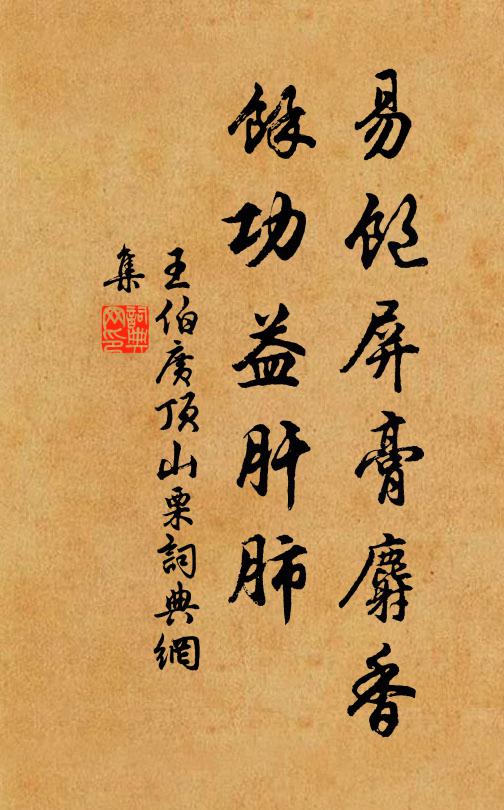 易飽屏膏麝香
餘功益肝肺
王伯廣頂山栗詞典網
集
詞典
网印